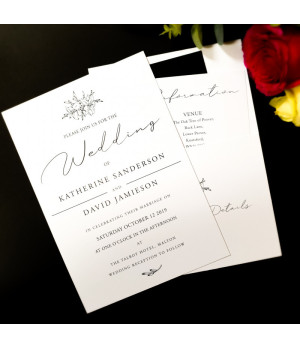 PLEASE JOIN US FOR THE
Wedding
OF
KATHERINE SANDERSON
AND
DAVID JAMIESON
IN CELEBRATING THEIR MARRIAGE ON
SATURDAY OCTOBER 12 2019
AT ONE O'CLOCK IN THE AFTERNOON
AT
THE TALBOT HOTEL, MALTON
WEDDING RECEPTION TO FOLLOW
Information
VENUE
Details